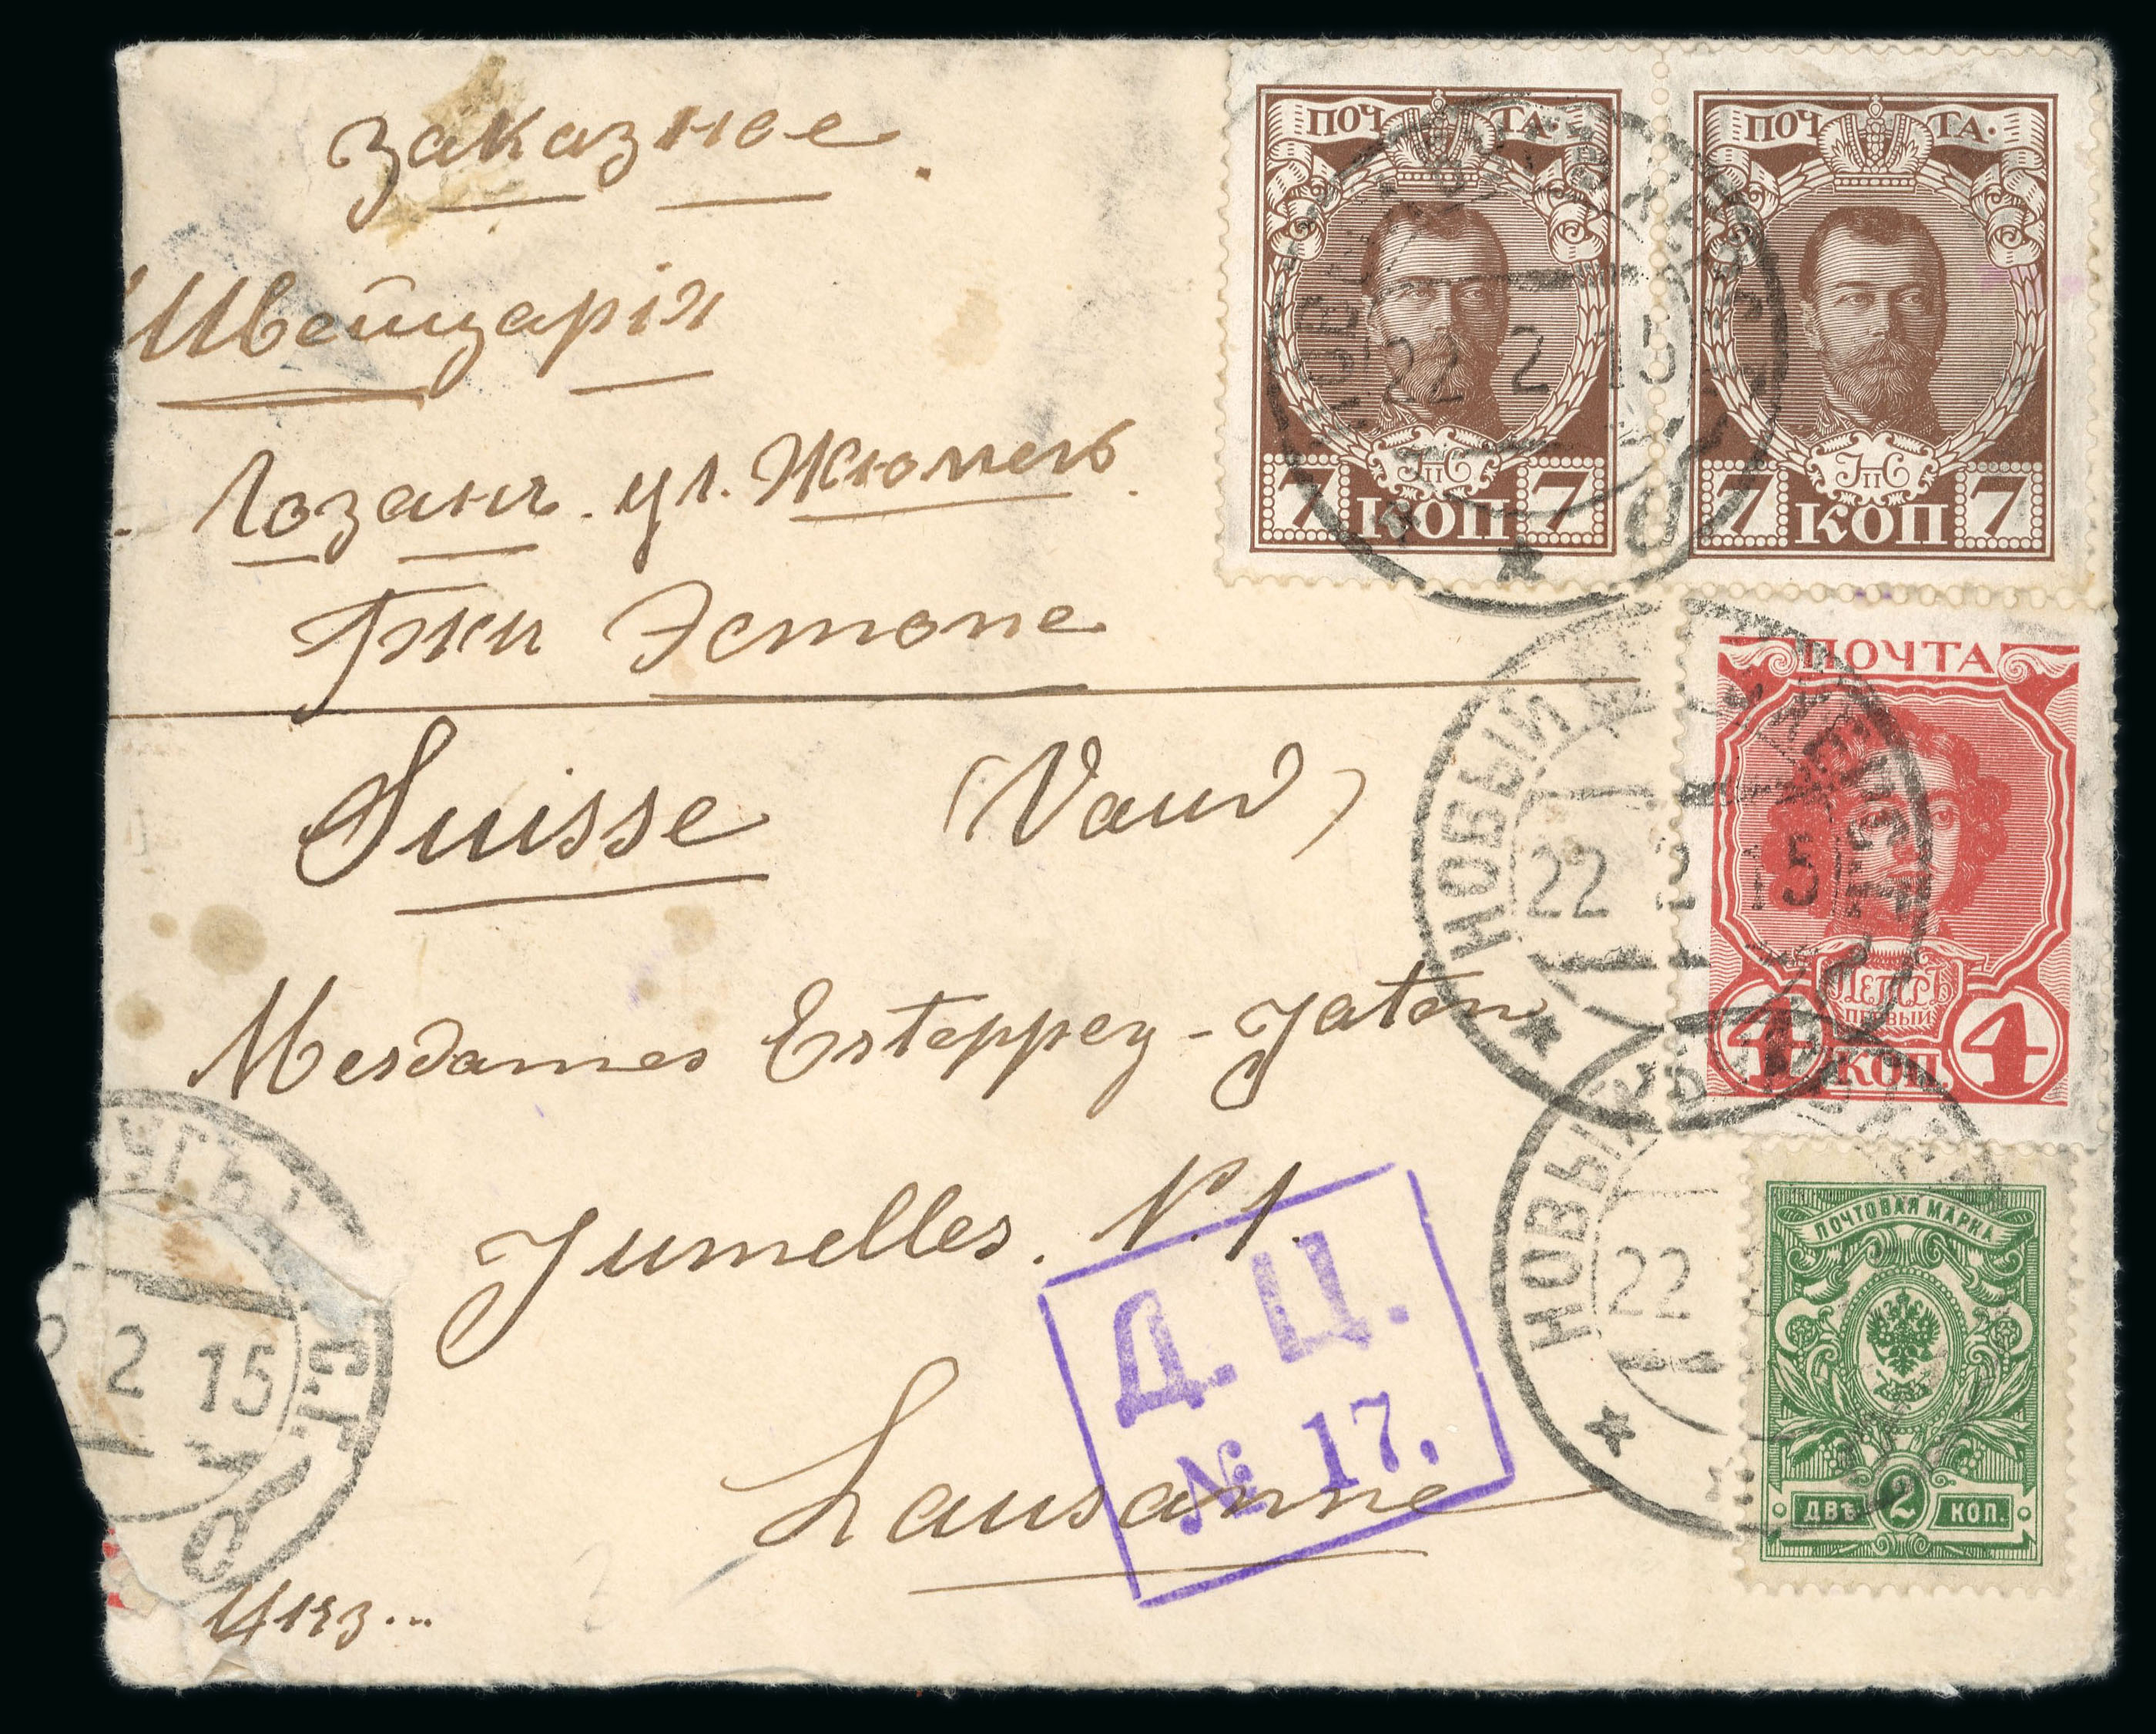 Заказное.
Швейцарія
Лозанъ. ул. Жюмель.
Гжи Эстопе
Suisse (Vaud)
Mesdames Esteppey-Jaton
Jumelles. № 1.
Lausanne
Д. Ц.
№ 17.
ПОЧТА.
7 КОП 7
ПОЧТА.
7 КОП 7
22 2 15
ПОЧТА
ПЕТРЪ
ПЕРВЫЙ
4 КОП. 4
НОВЫЙ
22 2 15
ПОЧТОВАЯ МАРКА
ДВѢ 2 КОП.
НОВЫЙ
22
2 15